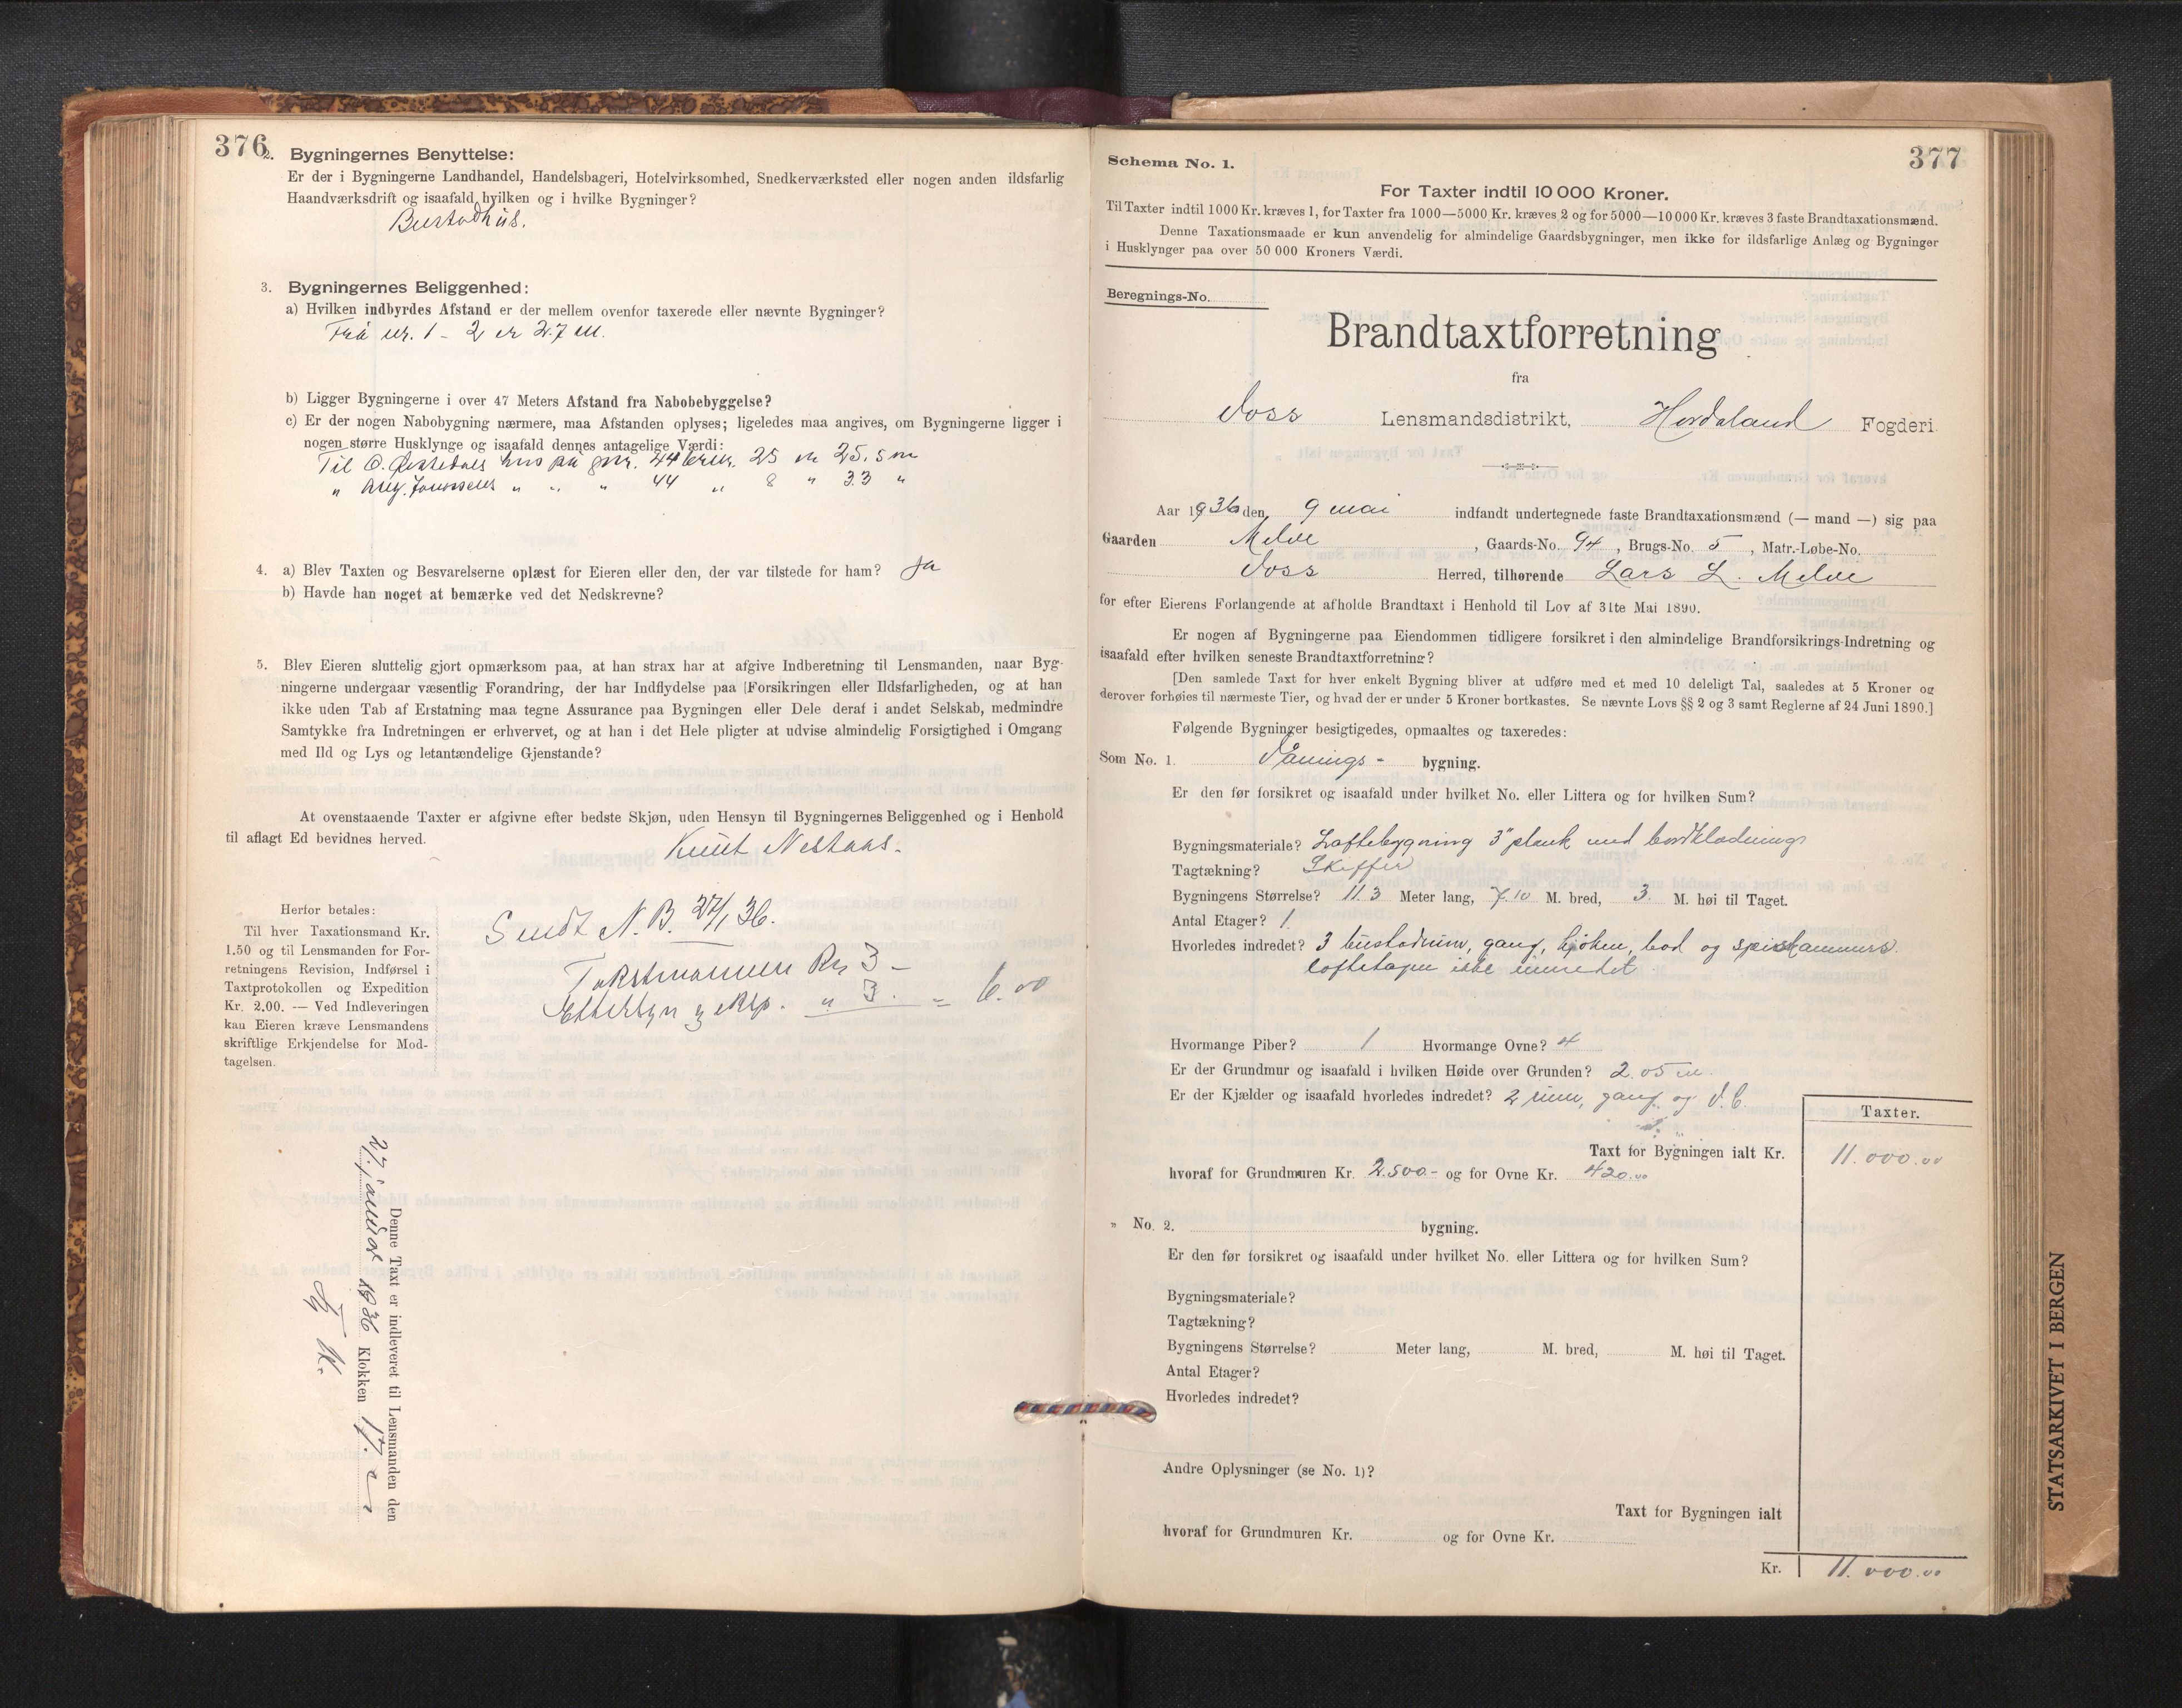 376
2. Bygningernes Benyttelse:
Er der i Bygningerne Landhandel, Handelsbageri, Hotelvirksomhed, Snedkerværksted eller nogen anden ildsfarlig
Haandværksdrift og isaafald hvilken og i hvilke Bygninger?
Bustadhus.
3. Bygningernes Beliggenhed:
a) Hvilken indbyrdes Afstand er der mellem ovenfor taxerede eller nævnte Bygninger?
Frå nr. 1 - 2 er 27 m.
b) Ligger Bygningerne i over 47 Meters Afstand fra Nabobebyggelse?
c) Er der nogen Nabobygning nærmere, maa Afstanden oplyses; ligeledes maa angives, om Bygningerne ligger i
nogen større Husklynge og isaafald dennes antagelige Værdi:
Til O. hus på gnr. 44 brnr. 25 er 25.5 m
" " " " 44 " 8 " 33 "
4. a) Blev Taxten og Besvarelserne oplæst for Eieren eller den, der var tilstede for ham? Ja
b) Havde han noget at bemærke ved det Nedskrevne?
5. Blev Eieren sluttelig gjort opmærksom paa, at han strax har at afgive Indberetning til Lensmanden, naar Byg-
ningerne undergaar væsentlig Forandring, der har Indflydelse paa [Forsikringen eller Ildsfarligheden, og at han
ikke uden Tab af Erstatning maa tegne Assurance paa Bygningen eller Dele deraf i andet Selskab, medmindre
Samtykke fra Indretningen er erhvervet, og at han i det Hele pligter at udvise almindelig Forsigtighed i Omgang
med Ild og Lys og letantændelige Gjenstande?
At ovenstaaende Taxter er afgivne efter bedste Skjøn, uden Hensyn til Bygningernes Beliggenhed og i Henhold
til aflagt Ed bevidnes herved.
Knut Nestaas.
Herfor betales:
Til hver Taxationsmand Kr.
1.50 og til Lensmanden for For-
retningens Revision, Indførsel i
Taxtprotokollen og Expedition
Kr. 2.00. — Ved Indleveringen
kan Eieren kræve Lensmandens
skriftlige Erkjendelse for Mod-
tagelsen.
Sendt N. B. 27/1 36.
Takstmannen Kr. 3 -
Ettersyn og eksp. " 3. = 6.00
Denne Taxt er indleveret til Lensmanden den
27. januar 1936 Klokken 17.
377
Schema No. 1.
For Taxter indtil 10 000 Kroner.
Til Taxter indtil 1000 Kr. kræves 1, for Taxter fra 1000—5000 Kr. kræves 2 og for 5000—10 000 Kr. kræves 3 faste Brandtaxationsmænd.
Denne Taxationsmaade er kun anvendelig for almindelige Gaardsbygninger, men ikke for ildsfarlige Anlæg og Bygninger
i Husklynger paa over 50 000 Kroners Værdi.
Beregnings-No.
Brandtaxtforretning
fra
Voss Lensmandsdistrikt, Hordaland Fogderi
Aar 1936 den 9 mai indfandt undertegnede faste Brandtaxationsmænd (— mand —) sig paa
Gaarden Melve, Gaards-No. 94, Brugs-No. 5, Matr.-Løbe-No.
Voss Herred, tilhørende Lars L. Melve
for efter Eierens Forlangende at afholde Brandtaxt i Henhold til Lov af 31te Mai 1890.
Er nogen af Bygningerne paa Eiendommen tidligere forsikret i den almindelige Brandforsikrings-Indretning og
isaafald efter hvilken seneste Brandtaxtforretning?
[Den samlede Taxt for hver enkelt Bygning bliver at udføre med et med 10 deleligt Tal, saaledes at 5 Kroner og
derover forhøies til nærmeste Tier, og hvad der er under 5 Kroner bortkastes. Se nævnte Lovs §§ 2 og 3 samt Reglerne af 24 Juni 1890.]
Følgende Bygninger besigtigedes, opmaaltes og taxeredes:
Som No. 1. Vånings - bygning.
Er den før forsikret og isaafald under hvilket No. eller Littera og for hvilken Sum?
Bygningsmateriale? Laftebygning 3" plank med bordklædning
Tagtækning? Skiffer
Bygningens Størrelse? 11.3 Meter lang, 7.10 M. bred, 3. M. høi til Taget.
Antal Etager? 1.
Hvorledes indredet? 3 bustadrum, gang, kjøken, bod og spiskammers.
loftetagen ikke innredet
Hvormange Piber? 1 Hvormange Ovne? 4
Er der Grundmur og isaafald i hvilken Høide over Grunden? 2.05 m.
Er der Kjælder og isaafald hvorledes indredet? 2 rum, gang og V.C.
Taxter.
Taxt for Bygningen ialt Kr. 11.000.00
hvoraf for Grundmuren Kr. 2.500.- og for Ovne Kr. 420.00
" No. 2. bygning.
Er den før forsikret og isaafald under hvilket No. eller Littera og for hvilken Sum?
Bygningsmateriale?
Tagtækning?
Bygningens Størrelse? Meter lang, M. bred, M. høi til Taget.
Antal Etager?
Hvorledes indredet?
Andre Oplysninger (se No. 1)?
Taxt for Bygningen ialt
hvoraf for Grundmuren Kr. og for Ovne Kr.
Kr. 11.000.00
STATSARKIVET I BERGEN